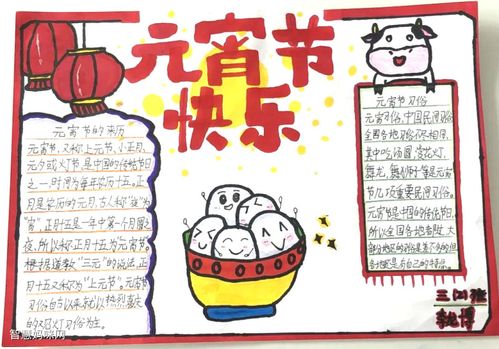 元宵节
快乐
元宵节的来历
元宵节，又称上元节、小正月、
元夕或灯节，是中国的传统节日
之一，时间为每年农历十五。正
月是农历的元月，古人称"夜"为
"宵"，正月十五是一年中第一个月圆之
夜，所以称正月十五为元宵节。
根据道教"三元"的说法，正
月十五又称为"上元节"。元宵节
习俗自古以来就以热烈喜庆
的观灯习俗为主。
元宵节习俗
元宵习俗，中国民间习俗，
全国各地习俗不尽相同，
其中吃汤圆、赏花灯、
舞龙、舞狮子等是元宵
节几项重要民间习俗。
元宵节是中国的传统节日，
所以全国各地都过，大
部分地区的习俗是差不多的，但
各地还是有自己的特点。
三(2)班
智慧妈咪网